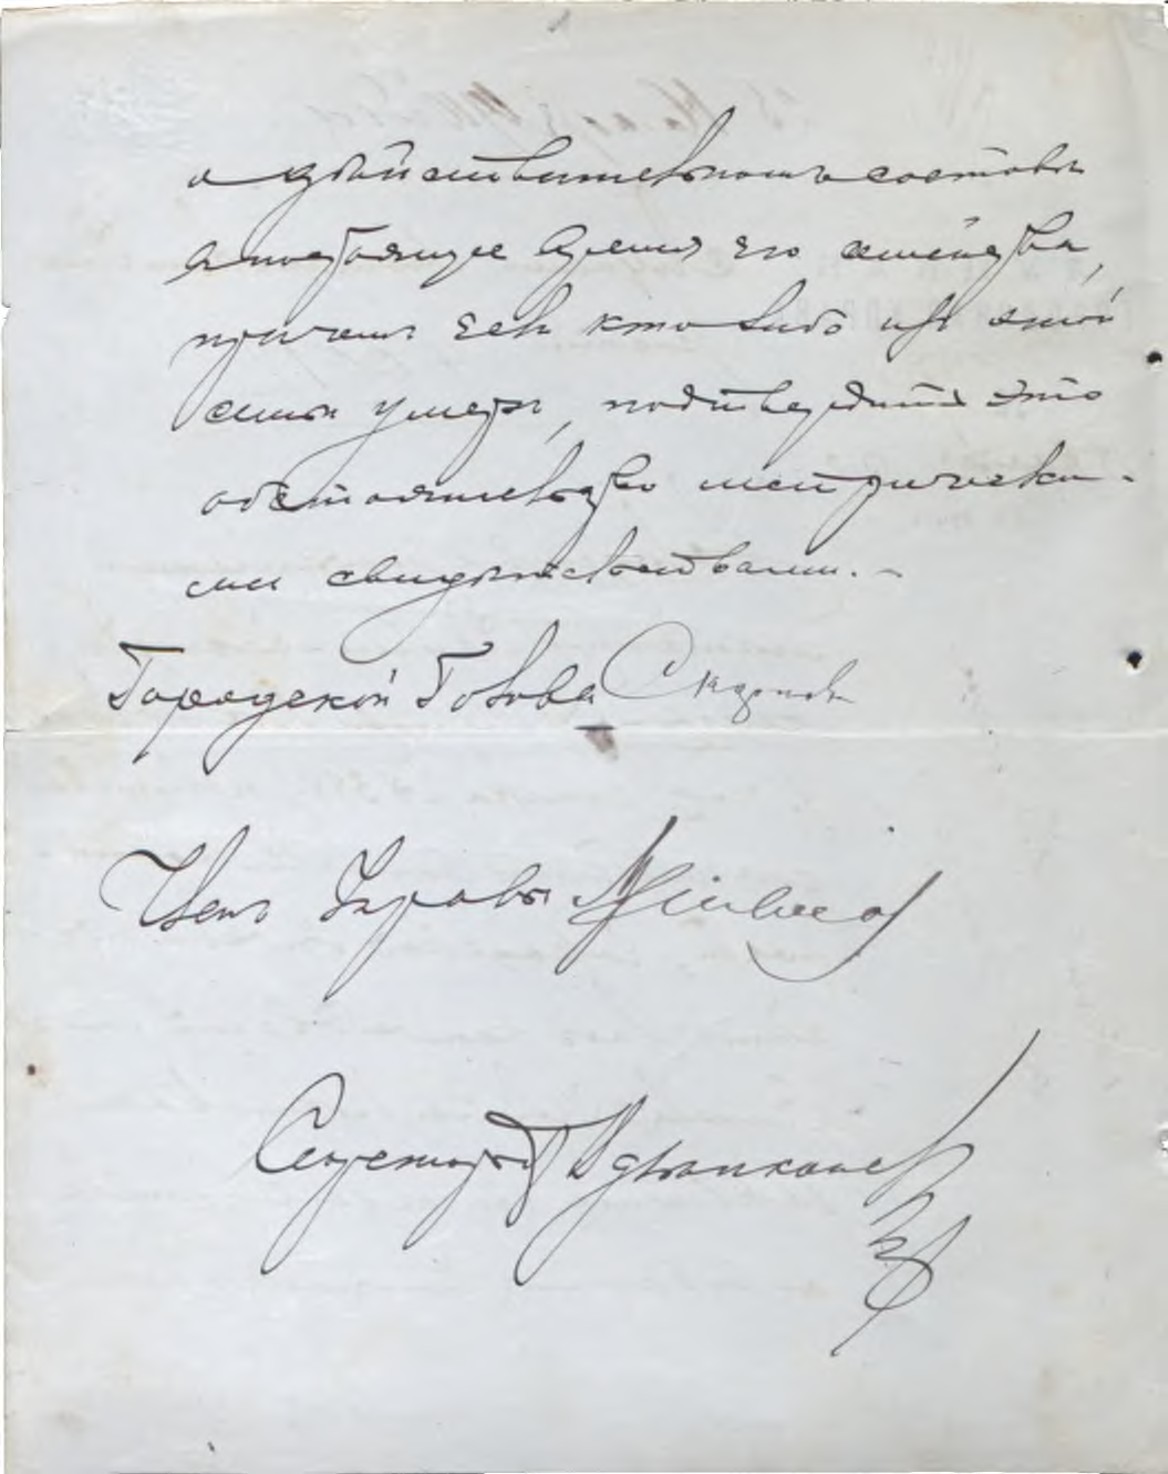 о действительномъ составѣ
въ настоящее время его семейства,
причемъ если кто либо изъ этой
семьи умеръ, подтвердить это
обстоятельство метрически-
ми свидѣтельствами. -
Городской Голова
Членъ Управы
Секретарь